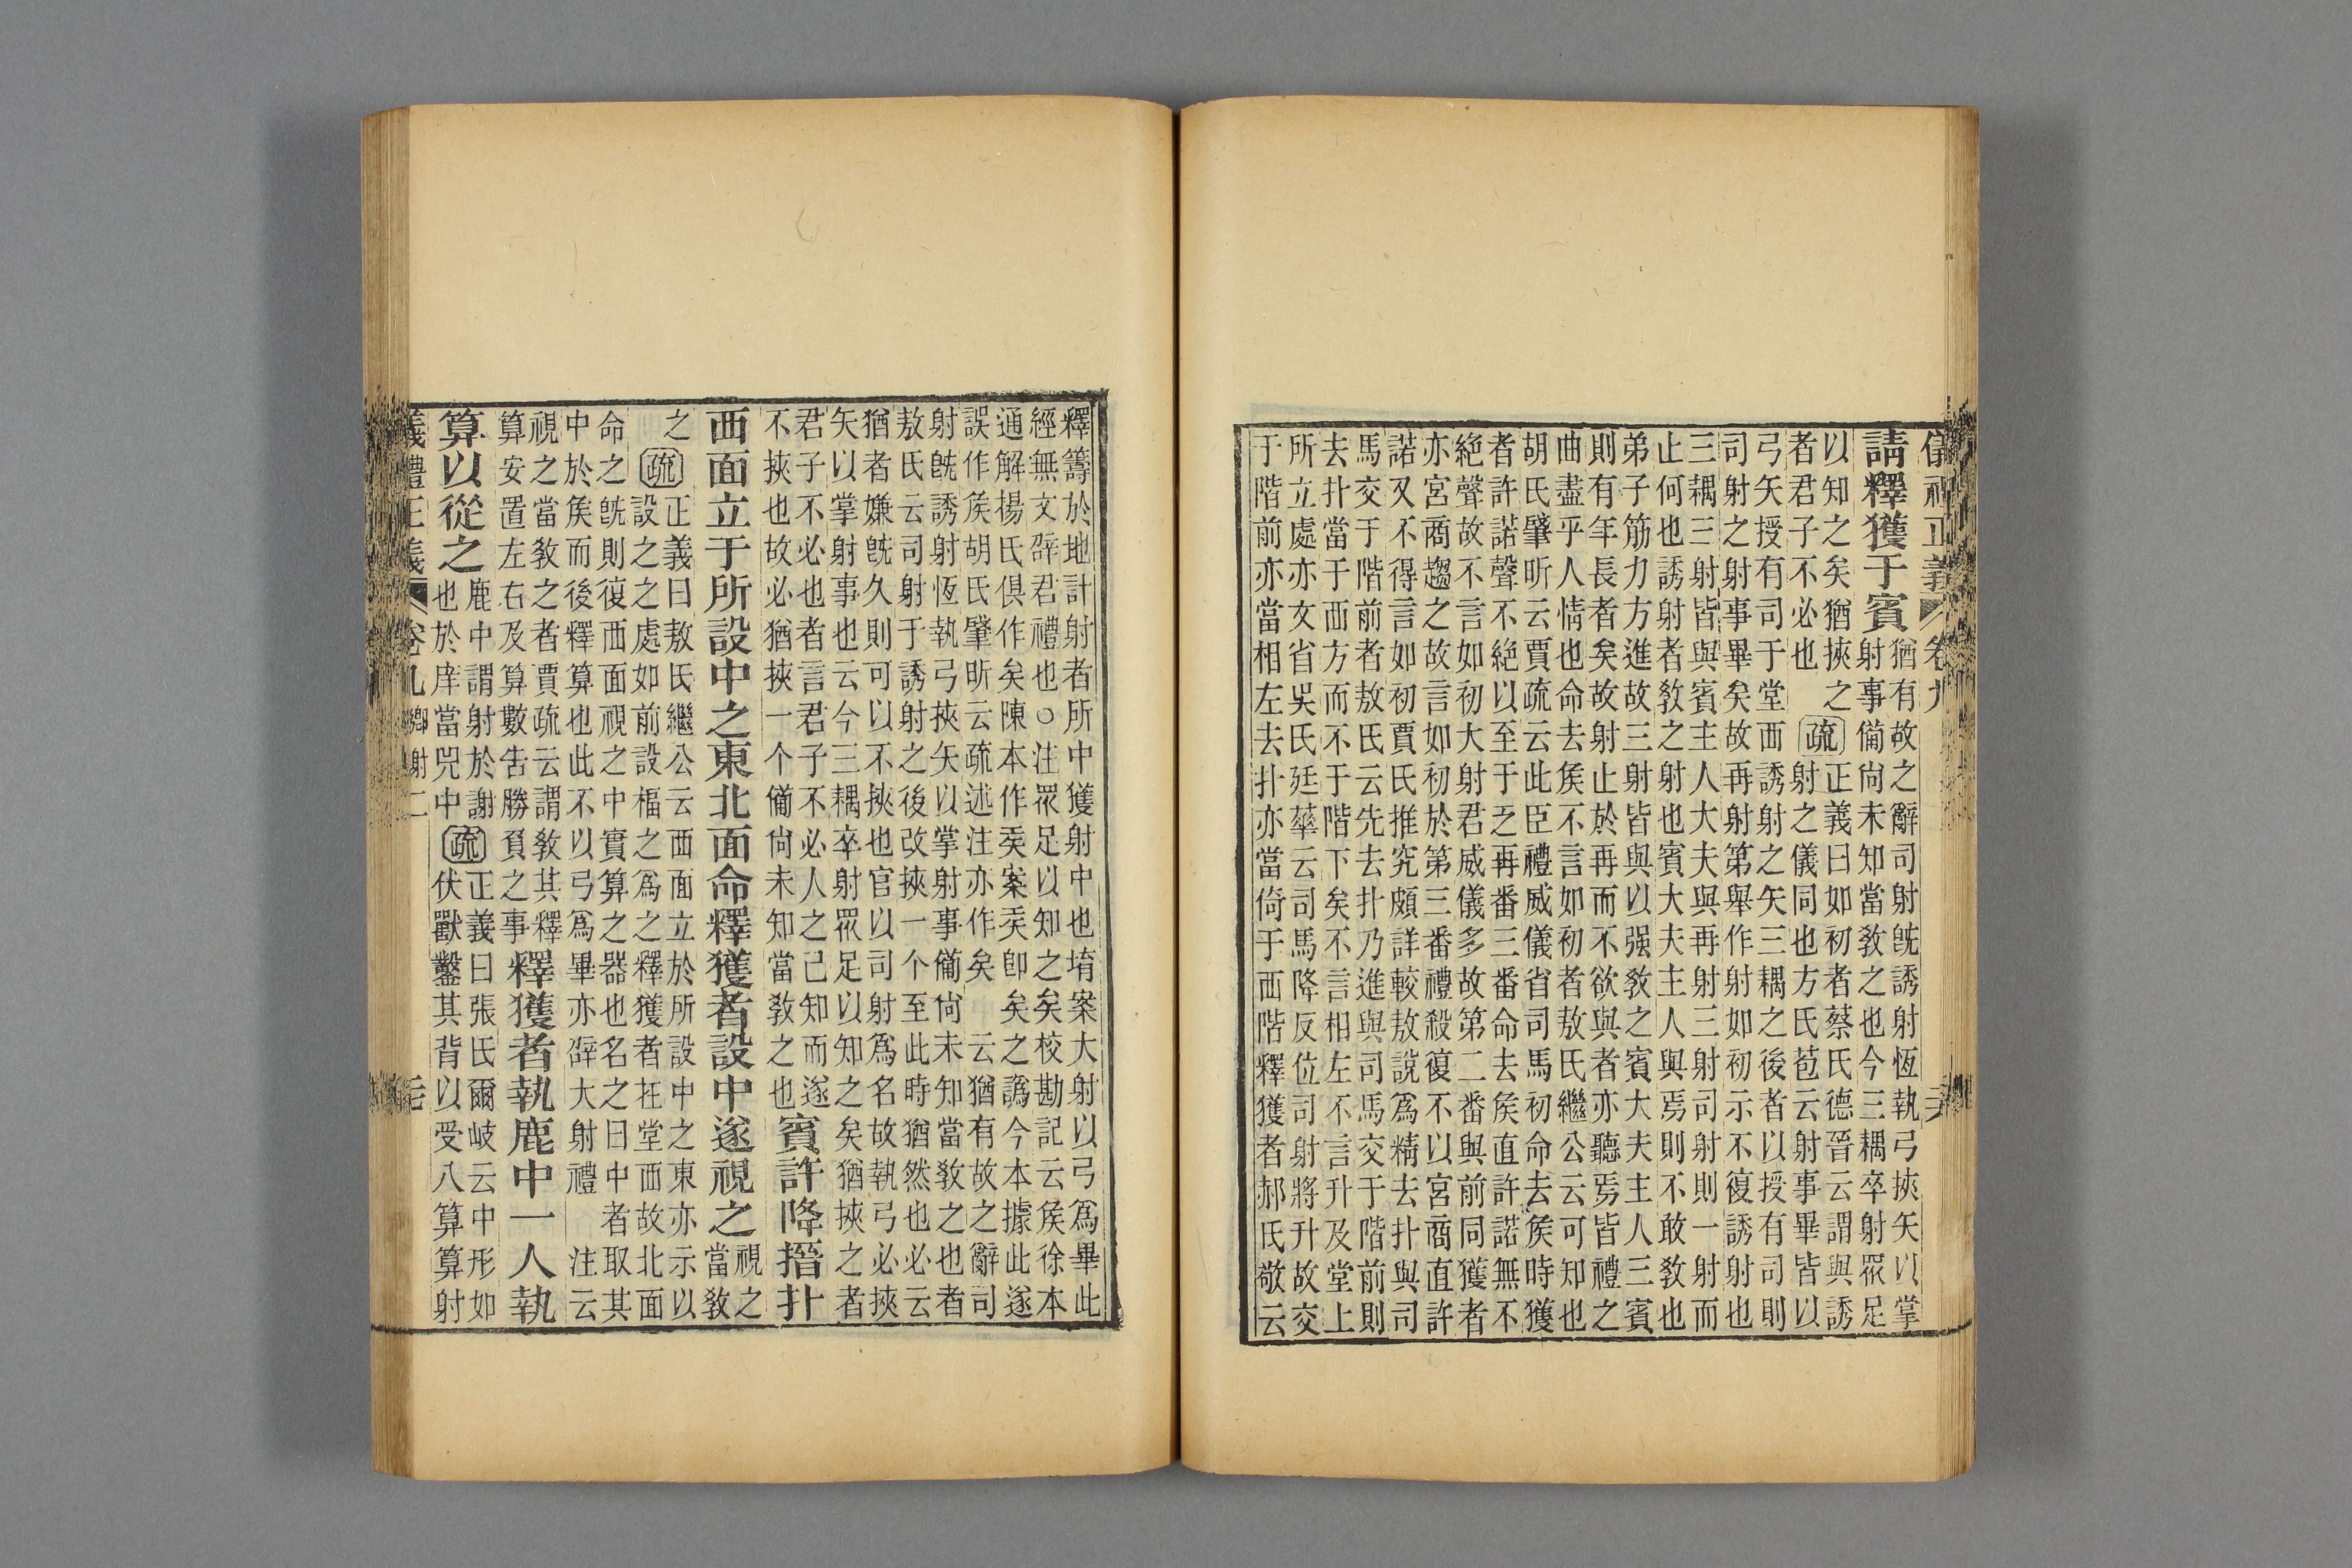 儀禮正義 卷九
請釋獲于賓猶有故之辭司射旣誘射恆執弓挾矢以掌
射事備尚未知當教之也今三耦卒射眾足
以知之矣猶挾之
者君子不必也
疏
正義曰如初者蔡氏德晉云謂與誘
射之儀同也方氏苞云射事畢皆以
弓矢授有司于堂西誘射之矢三耦之後者以授有司則
司射之射事畢矣故再射第舉作射如初示不復誘射也
三耦三射皆與賓主人大夫與再射三射司射則一射而
止何也誘射者教之射也賓大夫主人與焉則不敢教也
弟子筋力方進故三射皆與以强教之賓大夫主人三賓
則有年長者矣故射止於再而不欲與者亦聽焉皆禮之
曲盡乎人情也命去矦不言如初者敖氏繼公云可知也
胡氏肇昕云賈疏云此臣禮威儀省司馬初命去矦時獲
者許諾聲不絕以至于乏再番三番命去矦直許諾無不
絕聲故不言如初大射君威儀多故第二番與前同獲者
亦宮商趨之故言如初於第三番禮殺復不以宮商直許
諾又不得言如初賈氏推究頗詳較敖說爲精去扑與司
馬交于階前者敖氏云先去扑乃進與司馬交于階前則
去扑當于西方而不于階下矣不言相左不言升及堂上
所立處亦文省吳氏廷華云司馬降反位司射將升故交
于階前亦當相左去扑亦當倚于西階釋獲者郝氏敬云
釋籌於地計射者所中獲射中也堉案大射以弓爲畢此
經無文辟君禮也○注眾足以知之矣校勘記云矦徐本
通解揚氏俱作矣陳本作奀案奀卽矣之譌今本據此遂
誤作矦胡氏肇昕云疏述注亦作矣 云猶有故之辭司
射旣誘射恆執弓挾矢以掌射事備尚未知當教之也者
敖氏云司射于誘射之後改挾一个至此時猶然也必云
猶者嫌旣久則可以不挾也官以司射爲名故執弓必挾
矢以掌射事也云今三耦卒射眾足以知之矣猶挾之者
君子不必也者言君子不必人之己知而遂
不挾也故必猶挾一个備尚未知當教之也
賓許降搢扑
西面立于所設中之東北面命釋獲者設中遂視之視之
當教
之
疏
正義曰敖氏繼公云西面立於所設中之東亦示以
設之之處如前設楅之爲之釋獲者在堂西故北面
命之旣則復西面視之中實算之器也名之曰中者取其
中於矦而後釋算也此不以弓爲畢亦辟大射禮 注云
視之當教之者賈疏云謂教其釋
算安置左右及算數告勝負之事
釋獲者執鹿中一人執
算以從之鹿中謂射於謝
也於庠當兕中
疏
正義曰張氏爾岐云中形如
伏獸鑿其背以受八算算射
義禮正義 卷九 鄉射二